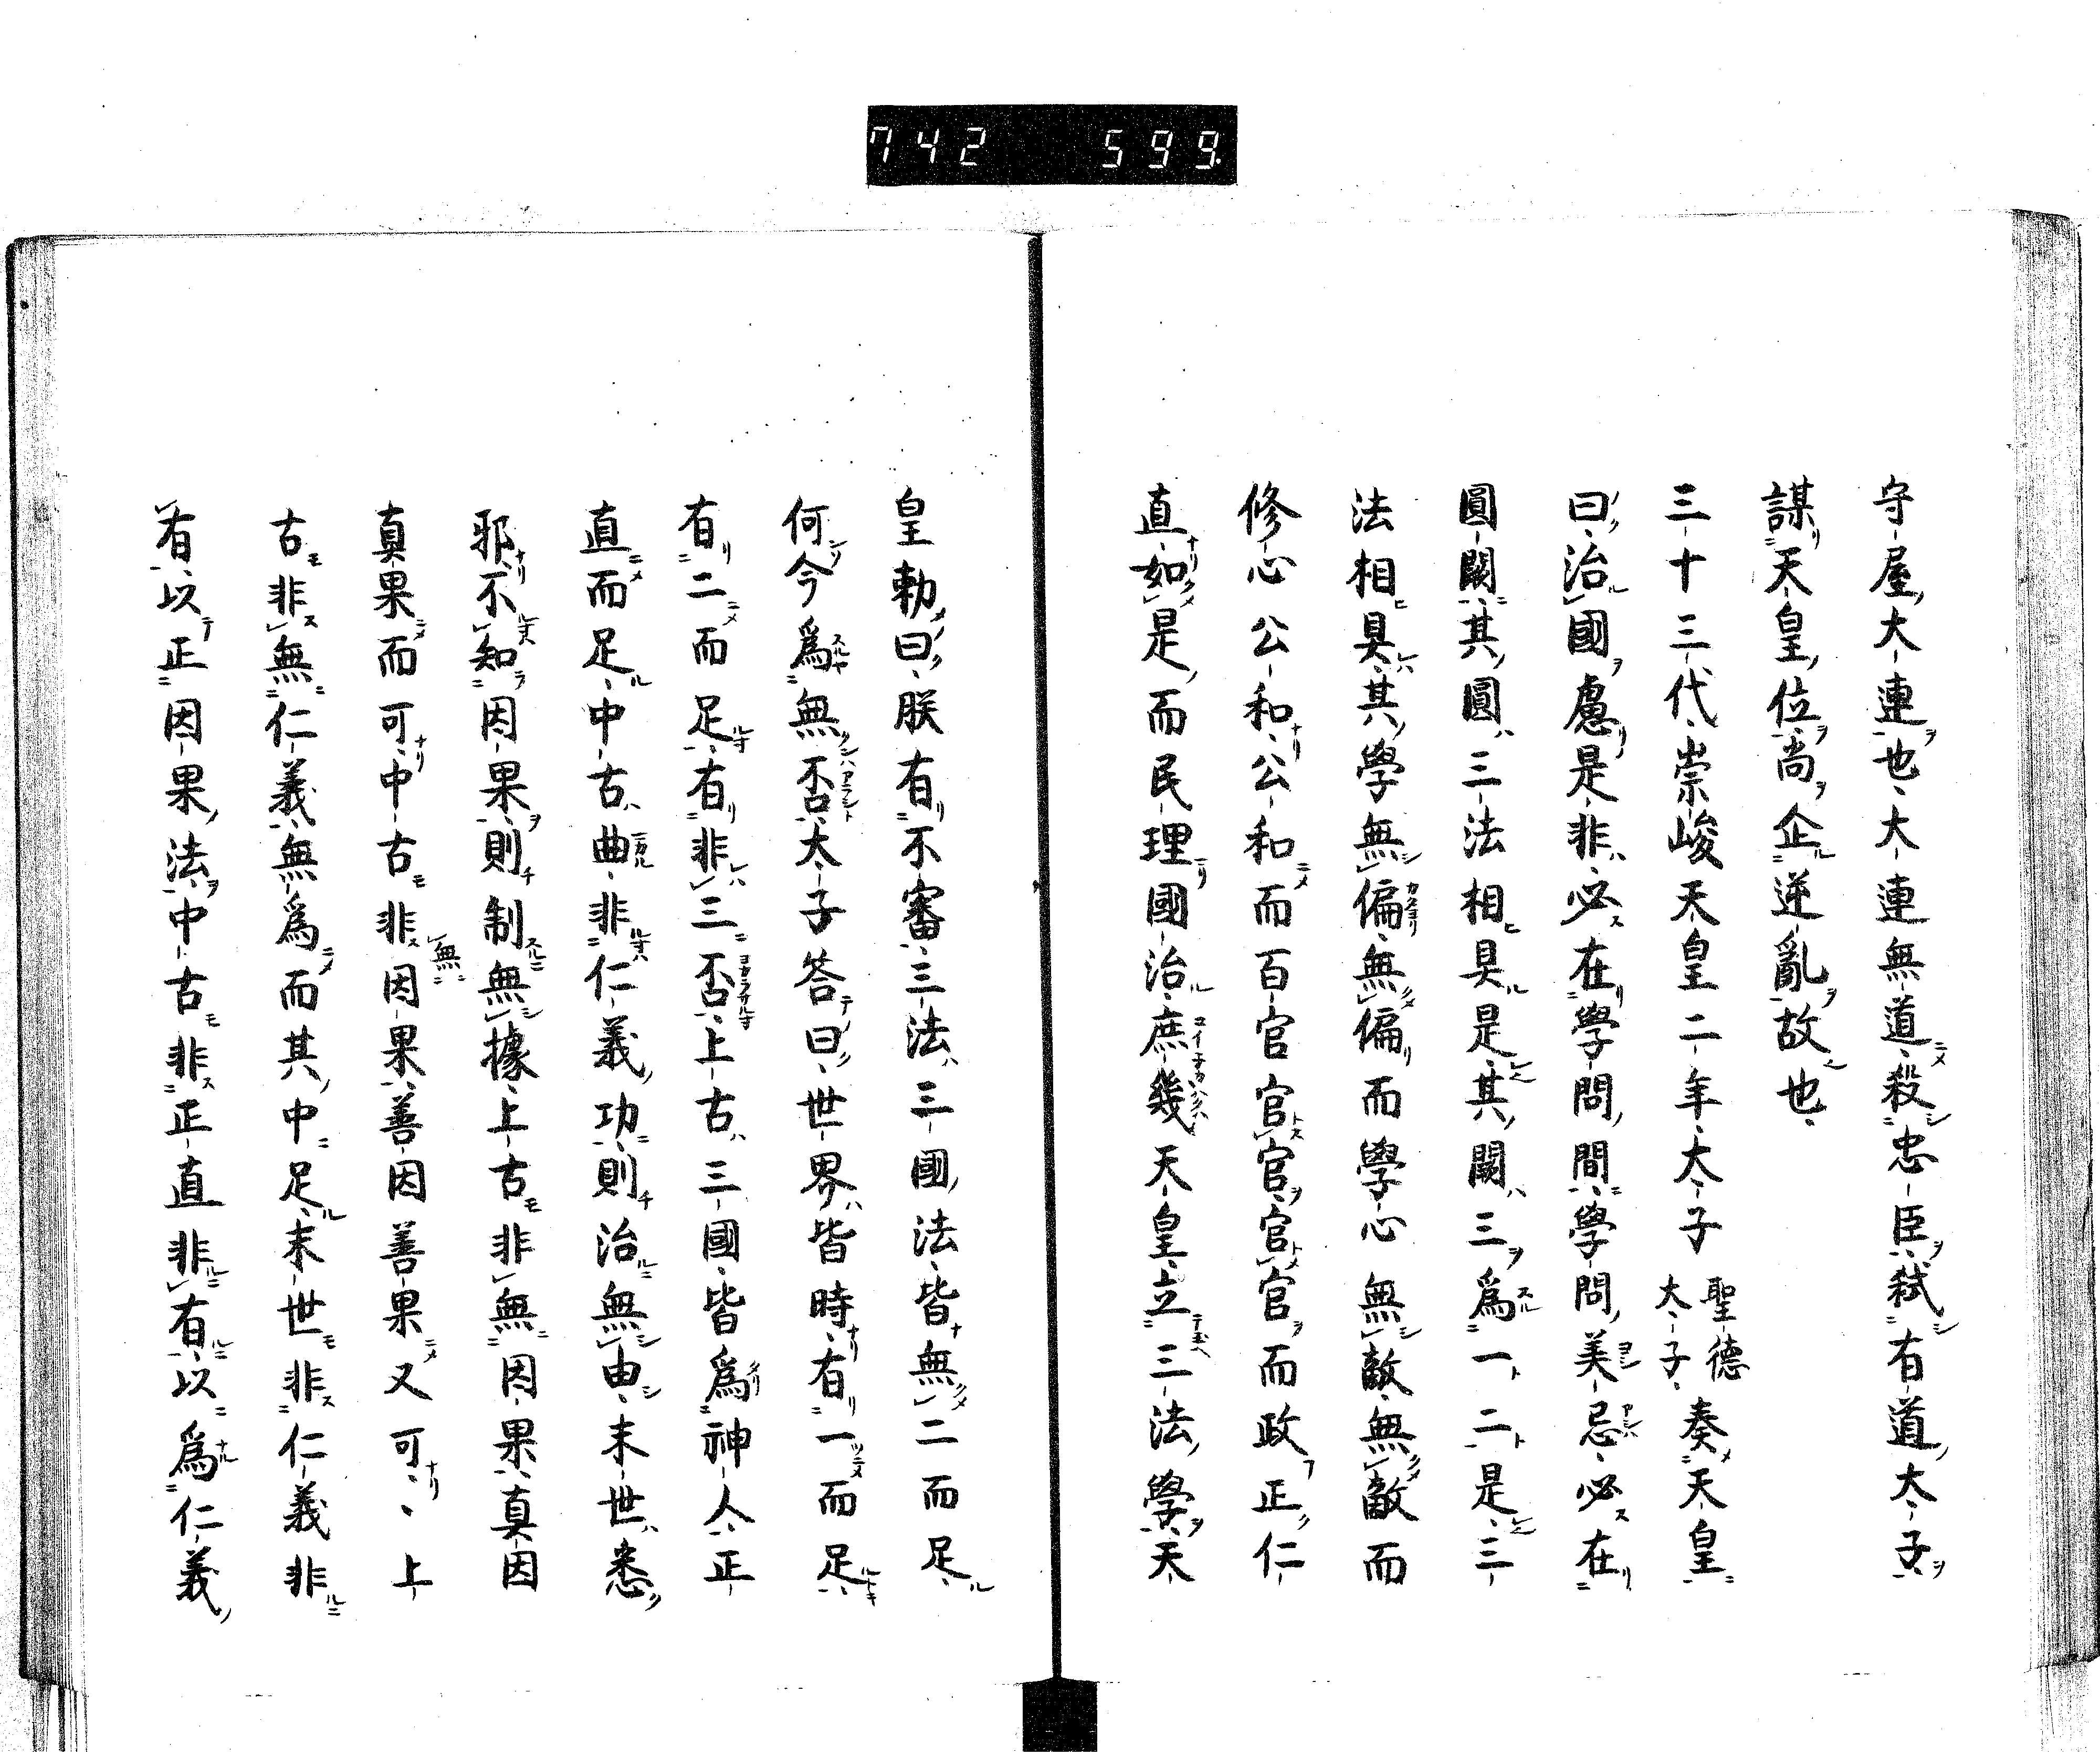 742 599.
守屋大連也大連無道殺忠臣弑有道太子
謀天皇位尚企逆亂故也
三十三代崇峻天皇二年太子聖德太子奏天皇
曰治國慮是非必在學問間學問美忌必在
圓闕其圓三法相具是其闕三爲一二是三
法相具其學無偏無偏而學心無敵無敵而
修心公和公和而百官官官官官而政正仁
直如是而民理國治庶幾天皇立三法學天
皇勅曰朕有不審三法三國法皆無二而足
何今爲無否太子答曰世界皆時有一而足
有二而足有非三否上古三國皆爲神人正
直而足中古曲非仁義功則治無由末世悉
邪不知因果則制無據上古非無因果真因
真果而可中古非無因果善因善果又可上
古非無仁義無爲而其中足末世非仁義非
有以正因果法中古非正直非有以爲仁義